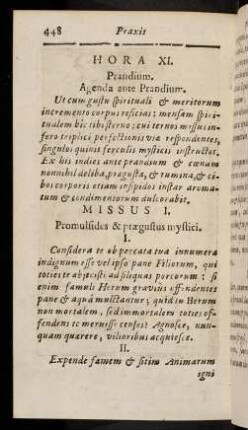 448 Praxis
HORA XI.
Prandium.
Agenda ante Prandium.
Ut cum gustu spirituali & meritorum
incremento corpus reficias; mensam spiri-
tualem hic tibi sterno: cui ternos missus in-
fero triplici perfectionis viæ respondentes,
singulos quinis ferculis mysticis instructos.
Ex his indies ante prandium & cœnam
nonnihil deliba, prægusta, & rumina, & ci-
bos corporis etiam insipidos instar aroma-
tum & condimentorum dulcorabit.
MISSUS I.
Promulsides & prægustus mystici.
I.
Considera te ob peccata tua innumera
indignum esse vel ipso pane Filiorum, qui
toties te abjecisti ad siliquas porcorum: si
enim famuli Herum gravius offendentes
pane & aquâ mulctantur; quid tu Herum
non mortalem, sed immortalem toties of-
fendens te meruisse censes? Agnosce, nun-
quam quærere, vilioribus acquiesce.
II.
Expende famem & sitim Animarum
igni